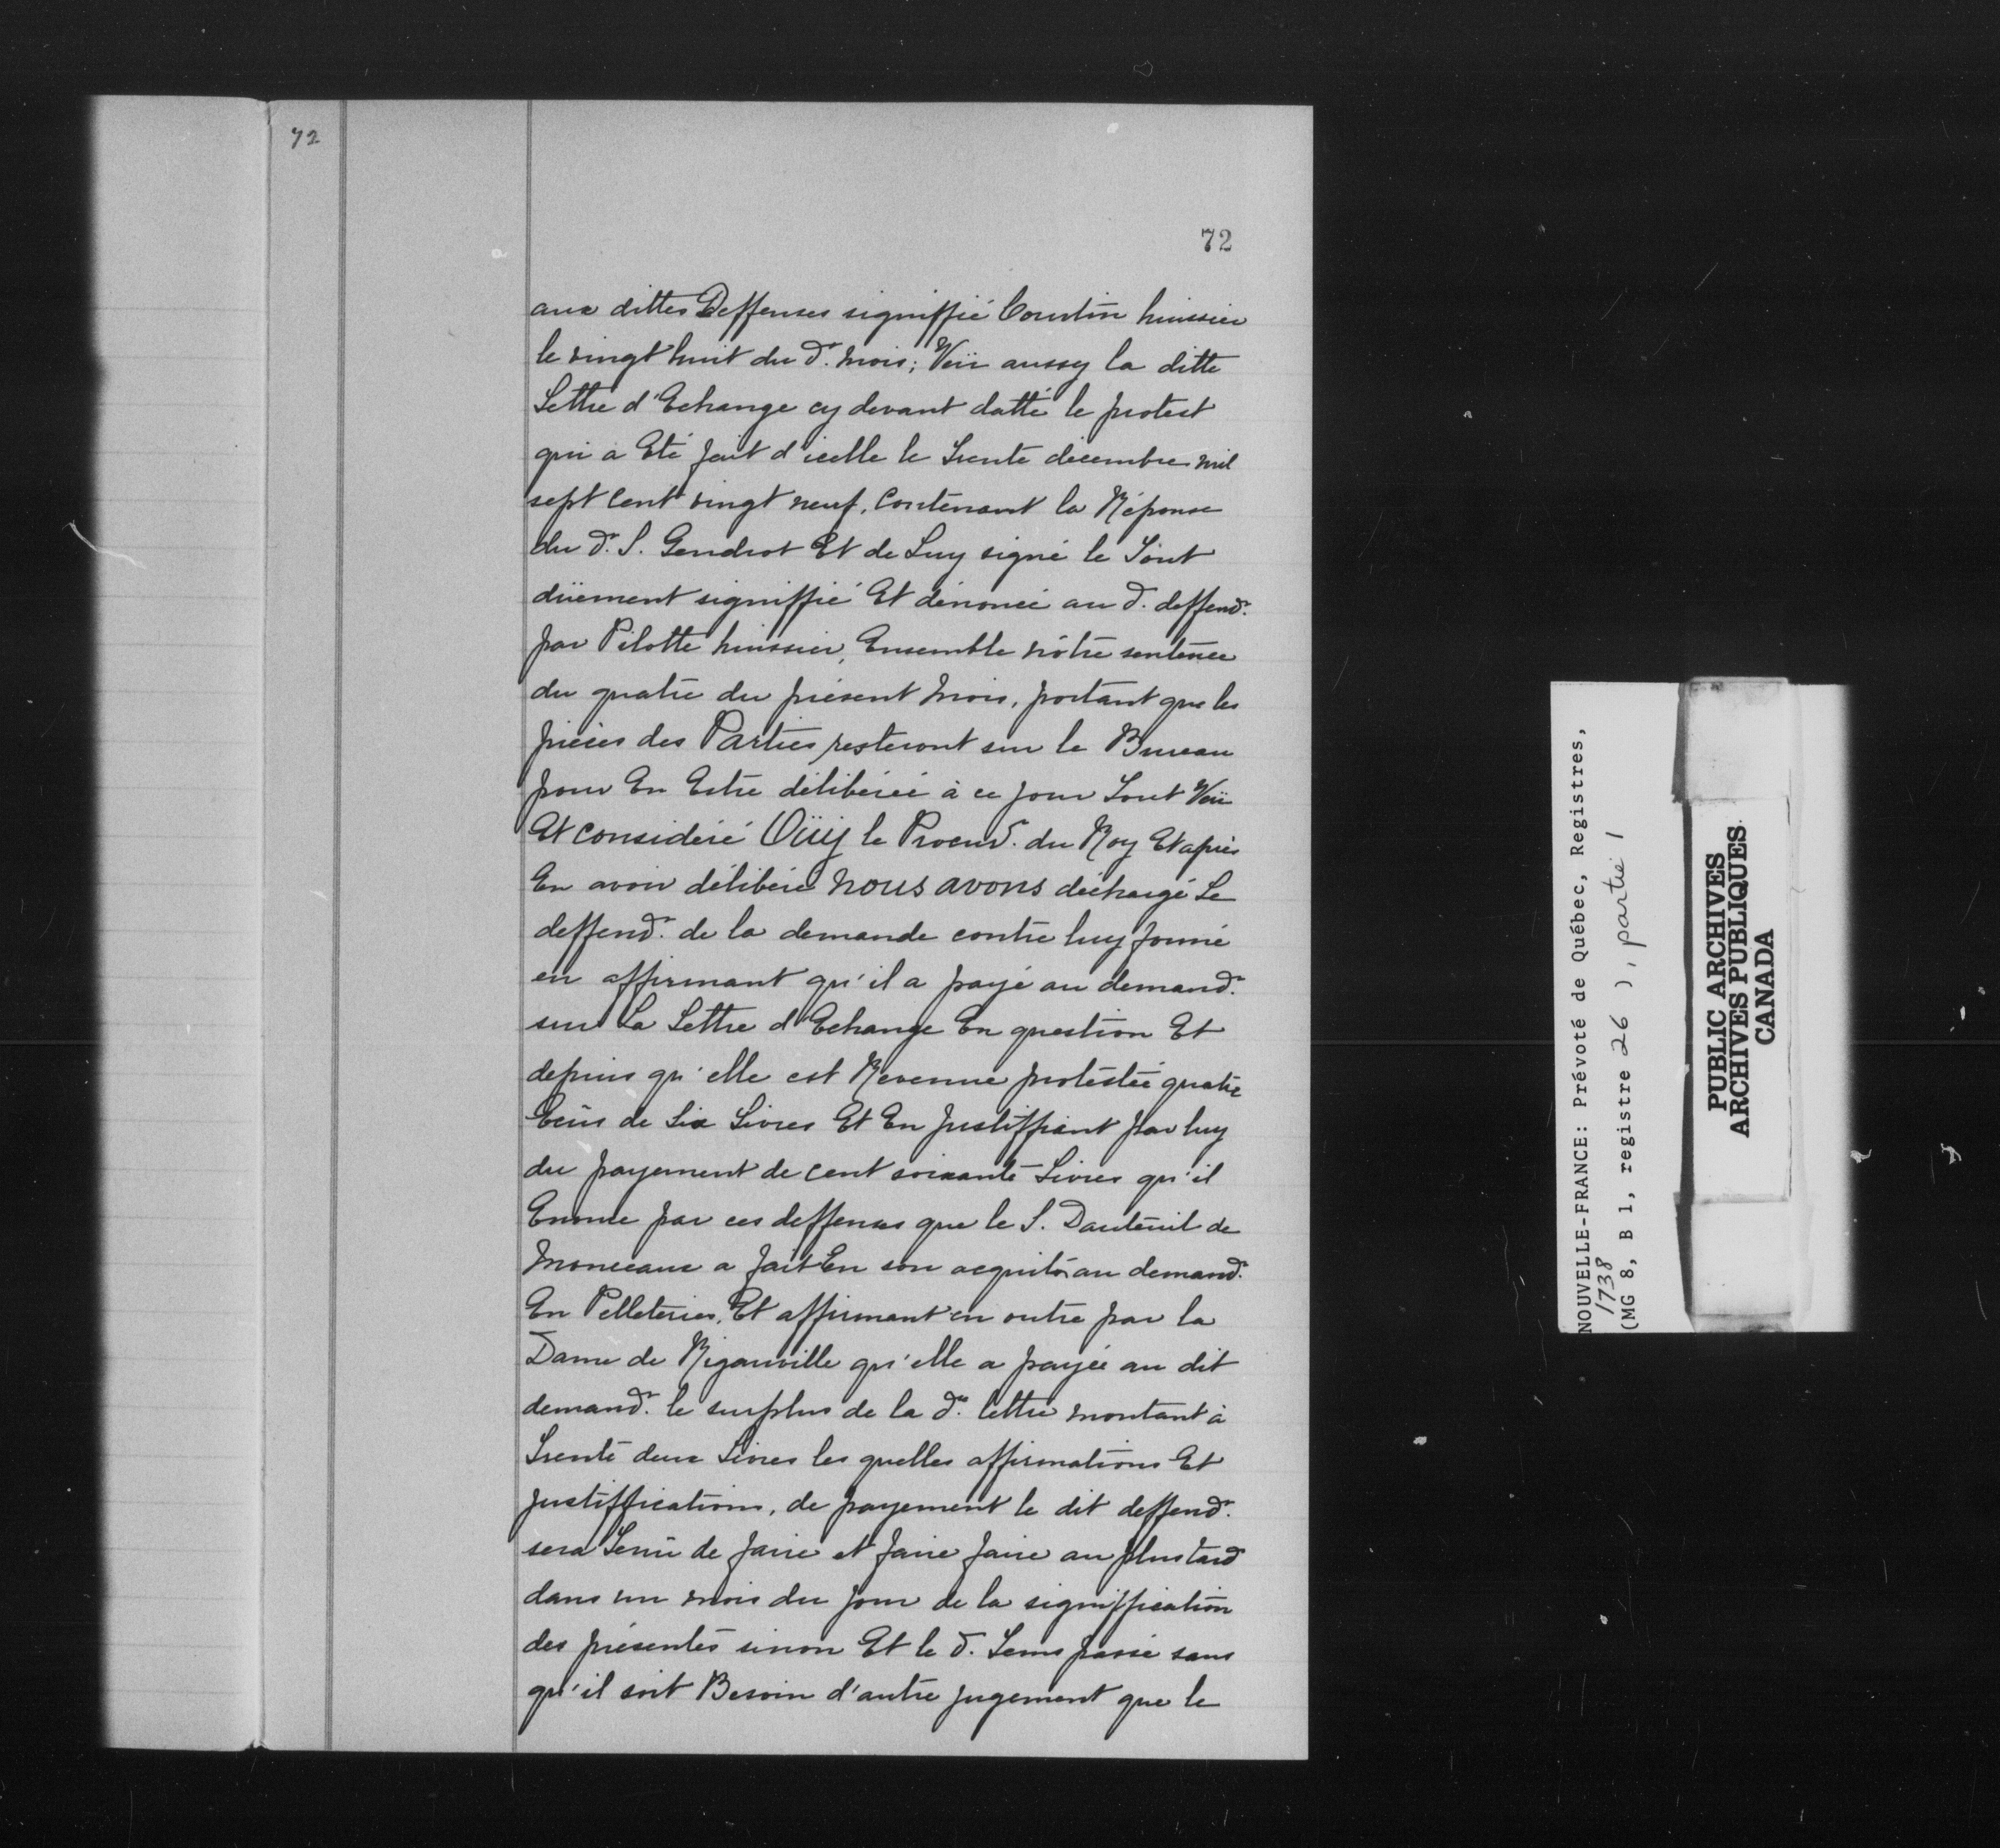 72
72
aux dittes Deffenses signiffié Courtin huissier
le vingt huit du d.r mois; Veü aussy la ditte
Lettre d'Echange cy devant datté le protest
qui a Eté fait d'icelle le Trente décembre mil
sept Cent vingt neuf, Contenant la Réponse
du d.r S. Gendrot Et de Luy signé le Tout
düement signiffié Et dénoncé au d. deffend.r
par Pilotte huissier, Ensemble nôtre sentence
du quatre du présent mois, portant que les
pièces des Parties resteront sur le Bureau
pour En Estre délibéréé à ce jour Tout Veü
Et considéré Oüij le Procur. du Roy Et après
En avoir délibéré nous avons déchargé Le
deffend.r de la demande contre luy formé
en affirmant qu'il a payé au demand.r
sur La Lettre d'Echange En question Et
depuis qu'elle est Revenue protéstée quatre
Ecus de Six Livres Et En Justiffiant par luy
du payement de cent soixante Livres qu'il
Enonce par ces deffenses que le S. Dauteuil de
Monceaux a fait En son acquit au demand.r
En Pelleteries, Et affirmant en outre par la
Dame de Rigauville qu'elle a payée au dit
demand.r le surplus de la d.e lettre montant à
Trente deux Livres les quelles affirmations Et
Justiffications, de payement le dit deffend.r
sera Tenü de faire et faire faire au plus tard
dans un mois du jour de la signiffication
des présentes sinon Et le d. Tems passé sans
qu'il soit Besoin d'autre jugement que le
NOUVELLE-FRANCE: Prévoté de Québec, Registres,
1738
(MG 8, B 1, registre 26 ), partie 1
PUBLIC ARCHIVES
ARCHIVES PUBLIQUES
CANADA